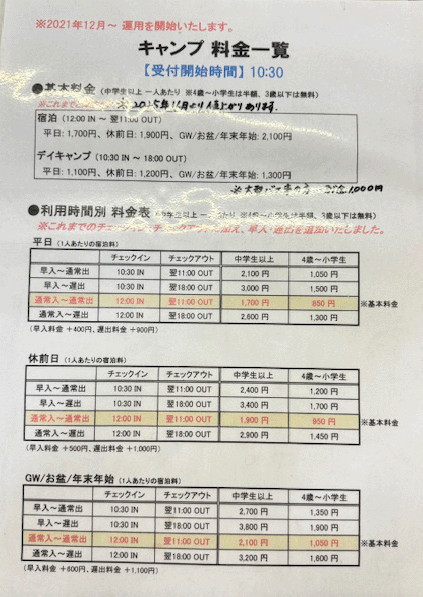 ※2021年12月～ 運用を開始いたします。
キャンプ 料金一覧
【受付開始時間】10:30
●基本料金 (中学生以上 一人あたり ※4歳～小学生は半額、3歳以下は無料)
※これまで ※2025年11月より値上がりあります。
宿泊 (12:00 IN ～ 翌11:00 OUT)
平日: 1,700円、休前日: 1,900円、GW/お盆/年末年始: 2,100円
デイキャンプ (10:30 IN ～ 18:00 OUT)
平日: 1,100円、休前日: 1,200円、GW/お盆/年末年始: 1,300円
1,000円
●利用時間別 料金表 (中学生以上 一人あたり ※4歳～小学生は半額、3歳以下は無料)
※これまでのチェックイン・チェックアウトに加え、早入・遅出を追加いたしました。
平日 (1人あたりの宿泊料)
チェックイン チェックアウト 中学生以上 4歳～小学生
早入～通常出 10:30 IN 翌11:00 OUT 2,100 円 1,050 円
早入～遅出 10:30 IN 翌18:00 OUT 3,000 円 1,500 円
通常入～通常出 12:00 IN 翌11:00 OUT 1,700 円 850 円 ※基本料金
通常入～遅出 12:00 IN 翌18:00 OUT 2,600 円 1,300 円
(早入料金 +400円、遅出料金 +900円)
休前日 (1人あたりの宿泊料)
チェックイン チェックアウト 中学生以上 4歳～小学生
早入～通常出 10:30 IN 翌11:00 OUT 2,400 円 1,200 円
早入～遅出 10:30 IN 翌18:00 OUT 3,400 円 1,700 円
通常入～通常出 12:00 IN 翌11:00 OUT 1,900 円 950 円 ※基本料金
通常入～遅出 12:00 IN 翌18:00 OUT 2,900 円 1,450 円
(早入料金 +500円、遅出料金 +1,000円)
GW/お盆/年末年始 (1人あたりの宿泊料)
チェックイン チェックアウト 中学生以上 4歳～小学生
早入～通常出 10:30 IN 翌11:00 OUT 2,700 円 1,350 円
早入～遅出 10:30 IN 翌18:00 OUT 3,800 円 1,900 円
通常入～通常出 12:00 IN 翌11:00 OUT 2,100 円 1,050 円 ※基本料金
通常入～遅出 12:00 IN 翌18:00 OUT 3,200 円 1,600 円
(早入料金 +600円、遅出料金 +1,100円)